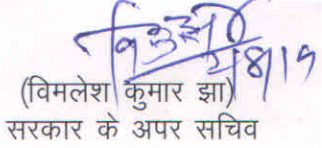 (विमलेश कुमार झा)
सरकार के अपर सचिव